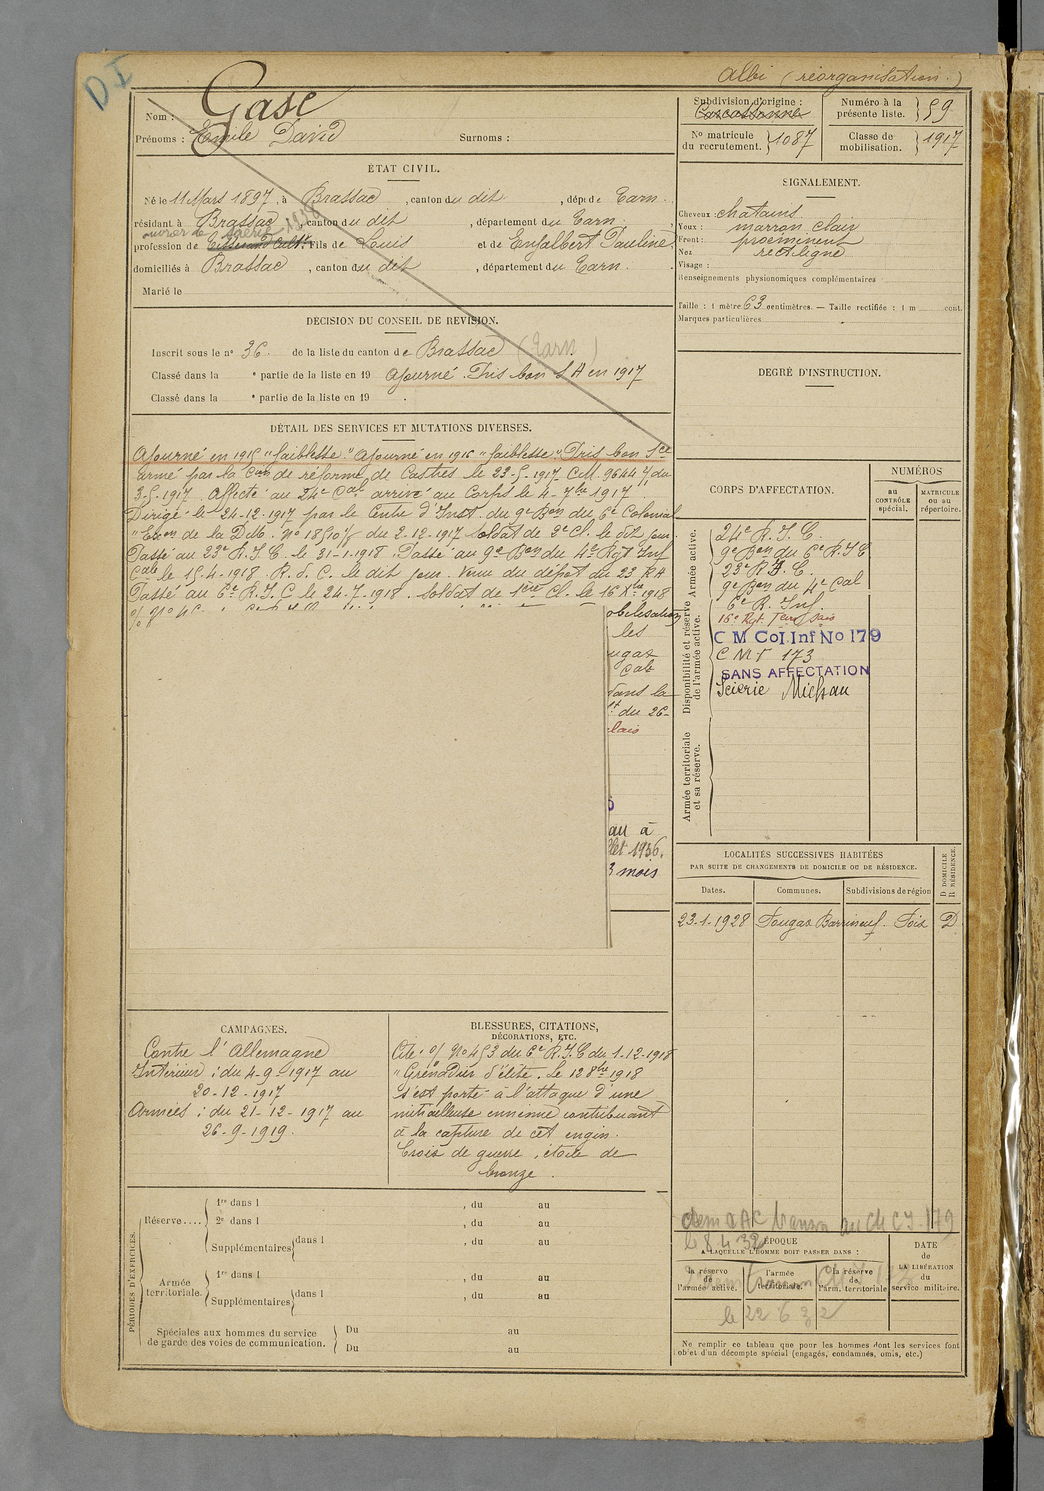 D I
Albi (réorganisation.)
Nom : Gasc
Prénoms : Emile David Surnoms :
Subdivision d'origine :
Carcassonne
Numéro à la présente liste. 59
No matricule du recrutement. 1087
Classe de mobilisation. 1917
ÉTAT CIVIL.
Né le 11 Mars 1897, à Brassac, canton du dit, dépt de Tarn.
résidant à Brassac, canton du dit, département du Tarn
ouvrier de scierie 1938
profession de Tisserand Cult. fils de Louis et de Enjalbert Pauline
domiciliés à Brassac, canton du dit, département du Tarn.
Marié le
SIGNALEMENT.
Cheveux : chatains.
Yeux : marron clair
Front : proéminent
Nez rectiligne
Visage :
Renseignements physionomiques complémentaires
Taille : 1 mètre 63 centimètres. — Taille rectifiée : 1 m cent.
Marques particulières
DÉCISION DU CONSEIL DE REVISION.
Inscrit sous le no 36 de la liste du canton de Brassac (Tarn)
Classé dans la e partie de la liste en 19 Ajourné. Pris bon S A en 1917
Classé dans la e partie de la liste en 19 .
DEGRÉ D'INSTRUCTION.
DÉTAIL DES SERVICES ET MUTATIONS DIVERSES.
Ajourné en 1915 "faiblesse" Ajourné en 1916 "faiblesse". Pris bon Sce
armé par la Con de réforme de Castres le 23-5-1917 CM. 9644 du
3-5-1917. Affecté au 24e Cal arrivé au Corps le 4-7bre 1917.
Dirigé le 24-12-1917 par le Centre d'Inst. du 9e Bon du 6e Colonial
"Exon de la D.M. No 18510 % du 2-12-1917 soldat de 2e Cl. le dit jour.
Passé au 23e R.I.C. le 31-1-1918. Passé au 9e Bon du 4e Rgt Inf
Cale le 15-4-1918. R.d.C. le dit jour. Venu du dépôt du 23 R A
Passé au 6e R.I.C le 24-7-1918. Soldat de 1ère Cl. le 16 Xbre 1918
obilisation
les
ugax
Cab
dans la
du 26-
lais
au à
llet 1936.
3 mois
CORPS D'AFFECTATION.
NUMÉROS
au CONTRÔLE spécial.
MATRICULE ou au répertoire.
Armée active.
24e R.I.C.
9e Bon du 6e R.I.C
23e R.I.C.
9e Bon du 4e Cal
Disponibilité et réserve de l'armée active.
6e R. Inf.
16e Rgt Tirs
C M Col. Inf No 179
C M I 173
SANS AFFECTATION
Scierie Michau
Armée territoriale et sa réserve.
LOCALITÉS SUCCESSIVES HABITÉES
PAR SUITE DE CHANGEMENTS DE DOMICILE OU DE RÉSIDENCE.
D DOMICILE R RÉSIDENCE.
Dates. Communes. Subdivisions de région
23-1-1928 Fougax Barrineuf. Foix D
CAMPAGNES.
Contre l'Allemagne
Intérieur : du 4-9-1917 au
20-12-1917
Armées : du 21-12-1917 au
26-9-1919.
BLESSURES, CITATIONS,
DÉCORATIONS, ETC.
Cité : o/ No 453 du 6e R.I.C du 1-12-1918
"Grenadier d'élite. Le 12 8bre 1918
s'est porté à l'attaque d'une
mitrailleuse ennemie contribuant
à la capture de cet engin.
Croix de guerre, étoile de
bronze.
PÉRIODES D'EXERCICES.
Réserve....
1re dans l , du au
2e dans l , du au
Supplémentaires dans l , du au
Armée territoriale.
1re dans l , du au
Supplémentaires dans l , du au
Spéciales aux hommes du service de garde des voies de communication.
Du au
Du au
au CM C I. 179
le 8 4 32
ÉPOQUE
A LAQUELLE L'HOMME DOIT PASSER DANS :
DATE de LA LIBÉRATION du service militaire.
la réserve de l'armée active.
l'armée territoriale.
la réserve de l'arm. territoriale
le 22 6 32
Ne remplir ce tableau que pour les hommes dont les services font
l'objet d'un décompte spécial (engagés, condamnés, omis, etc.)